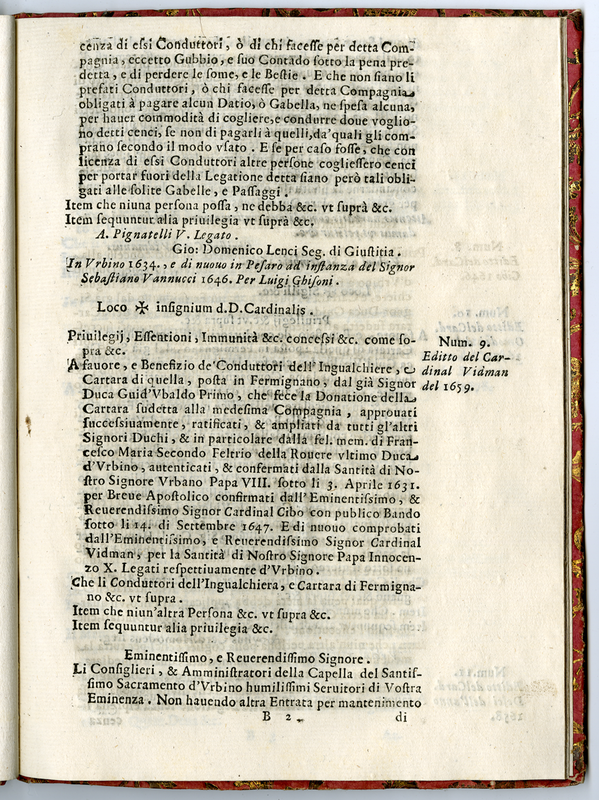 cenza di essi Conduttori, ò di chi facesse per detta Com-
pagnia, eccetto Gubbio, e suo Contado sotto la pena pre-
detta, e di perdere le some, e le Bestie. E che non siano li
prefati Conduttori, ò chi facesse per detta Compagnia
obligati à pagare alcun Datio, ò Gabella, ne spesa alcuna,
per hauer commodità di cogliere, e condurre doue voglio-
no detti cenci, se non di pagarli à quelli, da'quali gli com-
prano secondo il modo vsato. E se per caso fosse, che con
licenza di essi Conduttori altre persone cogliessero cenci
per portar fuori della Legatione detta siano però tali obli-
gati alle solite Gabelle, e Passaggi.
Item che niuna persona possa, ne debba &c. vt suprà &c.
Item sequuntur alia priuilegia vt suprà &c.
A. Pignatelli V. Legato.
Gio: Domenico Lenci Seg. di Giustitia.
In Vrbino 1634., e di nuouo in Pesaro ad instanza del Signor
Sebastiano Vannucci 1646. Per Luigi Ghisoni.
Loco ✠ insignium d. D. Cardinalis.
Priuilegij, Essentioni, Immunità &c. concessi &c. come so-
pra &c.
A fauore, e Benefizio de'Conduttori dell'Ingualchiere, e
Cartara di quella, posta in Fermignano, dal già Signor
Duca Guid'Vbaldo Primo, che fece la Donatione della
Cartara sudetta alla medesima Compagnia, approuati
successiuamente, ratificati, & ampliati da tutti gl'altri
Signori Duchi, & in particolare dalla fel. mem. di Fran-
cesco Maria Secondo Feltrio della Rouere vltimo Duca
d'Vrbino, autenticati, & confermati dalla Santità di No-
stro Signore Vrbano Papa VIII. sotto li 3. Aprile 1631.
per Breue Apostolico confirmati dall'Eminentissimo, &
Reuerendissimo Signor Cardinal Cibo con publico Bando
sotto li 14. di Settembre 1647. E di nuouo comprobati
dall'Eminentissimo, e Reuerendissimo Signor Cardinal
Vidman, per la Santità di Nostro Signore Papa Innocen-
zo X. Legati respettiuamente d'Vrbino.
Che li Conduttori dell'Ingualchiera, e Cartara di Fermigna-
no &c. vt supra.
Item che niun'altra Persona &c. vt supra &c.
Item sequuntur alia priuilegia &c.
Num. 9.
Editto del Car-
dinal Vidman
del 1659.
Eminentissimo, e Reuerendissimo Signore.
Li Consiglieri, & Amministratori della Capella del Santis-
simo Sacramento d'Vrbino humilissimi Seruitori di Vostra
Eminenza. Non hauendo altra Entrata per mantenimento
B 2 di